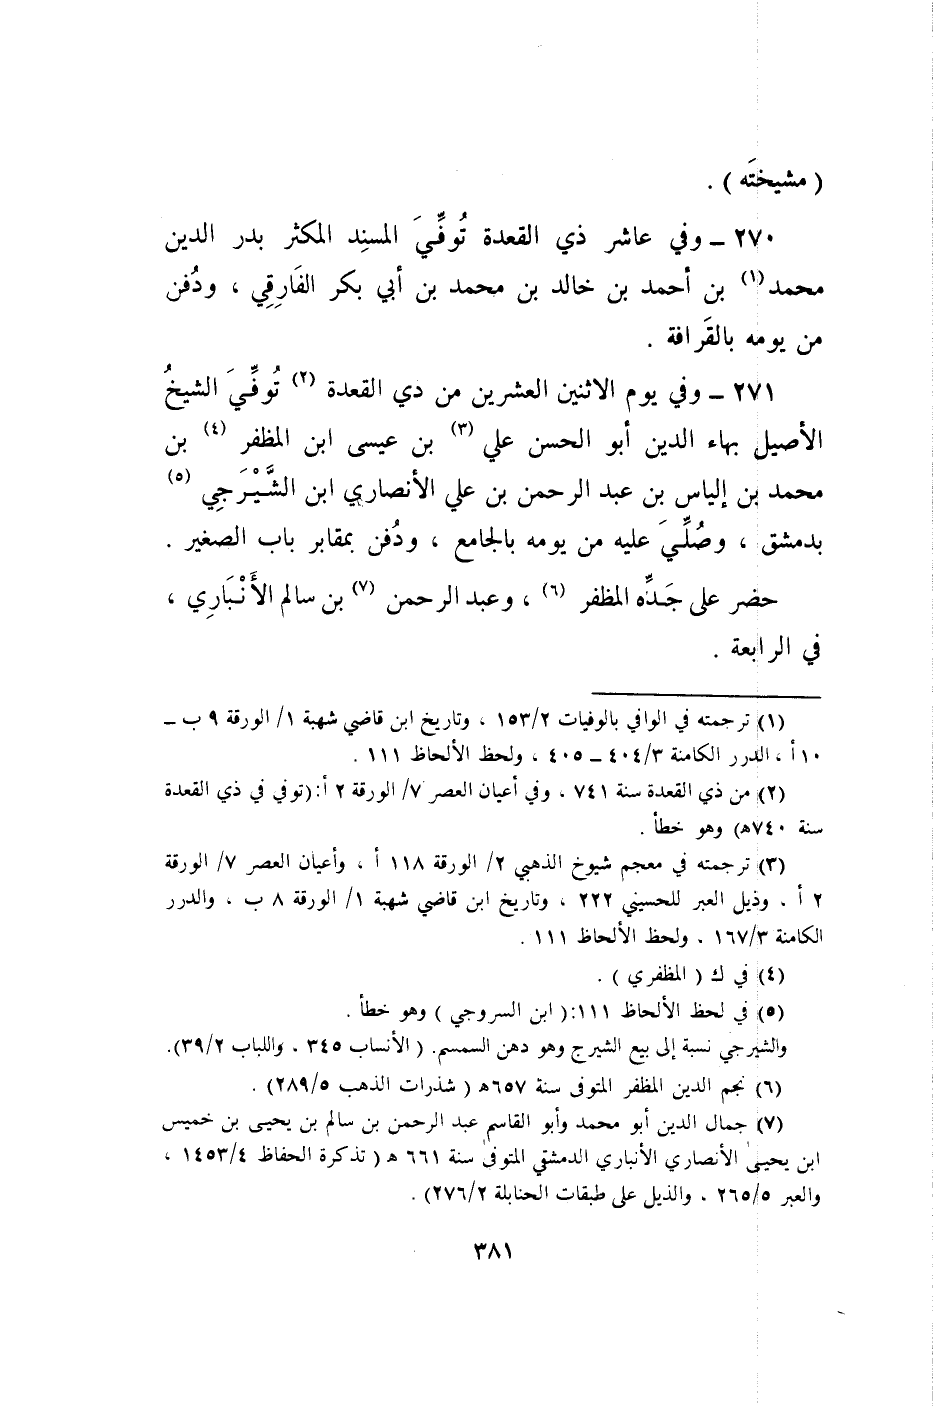 ( مشيختَه ) .
٢٧٠ ــ وفي عاشر ذي القعدة تُوفِّيَ المسنِد المكثر بدر الدين
محمد(١) بن أحمد بن خالد بن محمد بن أبي بكر الفَارِقِي ، ودُفن
من يومه بالقَرافة .
٢٧١ ــ وفي يوم الاثنين العشرين من ذي القعدة (٢) تُوفِّيَ الشيخُ
الأصيل بهاء الدين أبو الحسن علي (٣) بن عيسى ابن المظفر (٤) بن
محمد بن إلياس بن عبد الرحمن بن علي الأنصاري ابن الشَّيْرَجِي (٥)
بدمشق ، وصُلِّيَ عليه من يومه بالجامع ، ودُفن بمقابر باب الصغير .
حضر على جَدِّه المظفر (٦) ، وعبد الرحمن (٧) بن سالم الأَنْبَارِي ،
في الرابعة .
(١) ترجمته في الوافي بالوفيات ١٥٣/٢ ، وتاريخ ابن قاضي شهبة ١/ الورقة ٩ ب ــ
١٠ أ ، الدرر الكامنة ٤٠٤/٣ ــ ٤٠٥ ، ولحظ الألحاظ ١١١ .
(٢) من ذي القعدة سنة ٧٤١ ، وفي أعيان العصر ٧/ الورقة ٢ أ:(توفي في ذي القعدة
سنة ٧٤٠هـ) وهو خطأ .
(٣) ترجمته في معجم شيوخ الذهبي ٢/ الورقة ١١٨ أ ، وأعيان العصر ٧/ الورقة
٢ أ ، وذيل العبر للحسيني ٢٢٢ ، وتاريخ ابن قاضي شهبة ١/ الورقة ٨ ب ، والدرر
الكامنة ١٦٧/٣ ، ولحظ الألحاظ ١١١ .
(٤) في ك ( المظفري ) .
(٥) في لحظ الألحاظ ١١١:( ابن السروجي ) وهو خطأ .
والشيرجي نسبة إلى بيع الشيرج وهو دهن السمسم. ( الأنساب ٣٤٥ ، واللباب ٣٩/٢).
(٦) نجم الدين المظفر المتوفى سنة ٦٥٧هـ ( شذرات الذهب ٢٨٩/٥) .
(٧) جمال الدين أبو محمد وأبو القاسم عبد الرحمن بن سالم بن يحيى بن خميس
ابن يحيى الأنصاري الأنباري الدمشقي المتوفى سنة ٦٦١ هـ ( تذكرة الحفاظ ١٤٥٣/٤ ،
والعبر ٢٦٥/٥ ، والذيل على طبقات الحنابلة ٢٧٦/٢) .
٣٨١